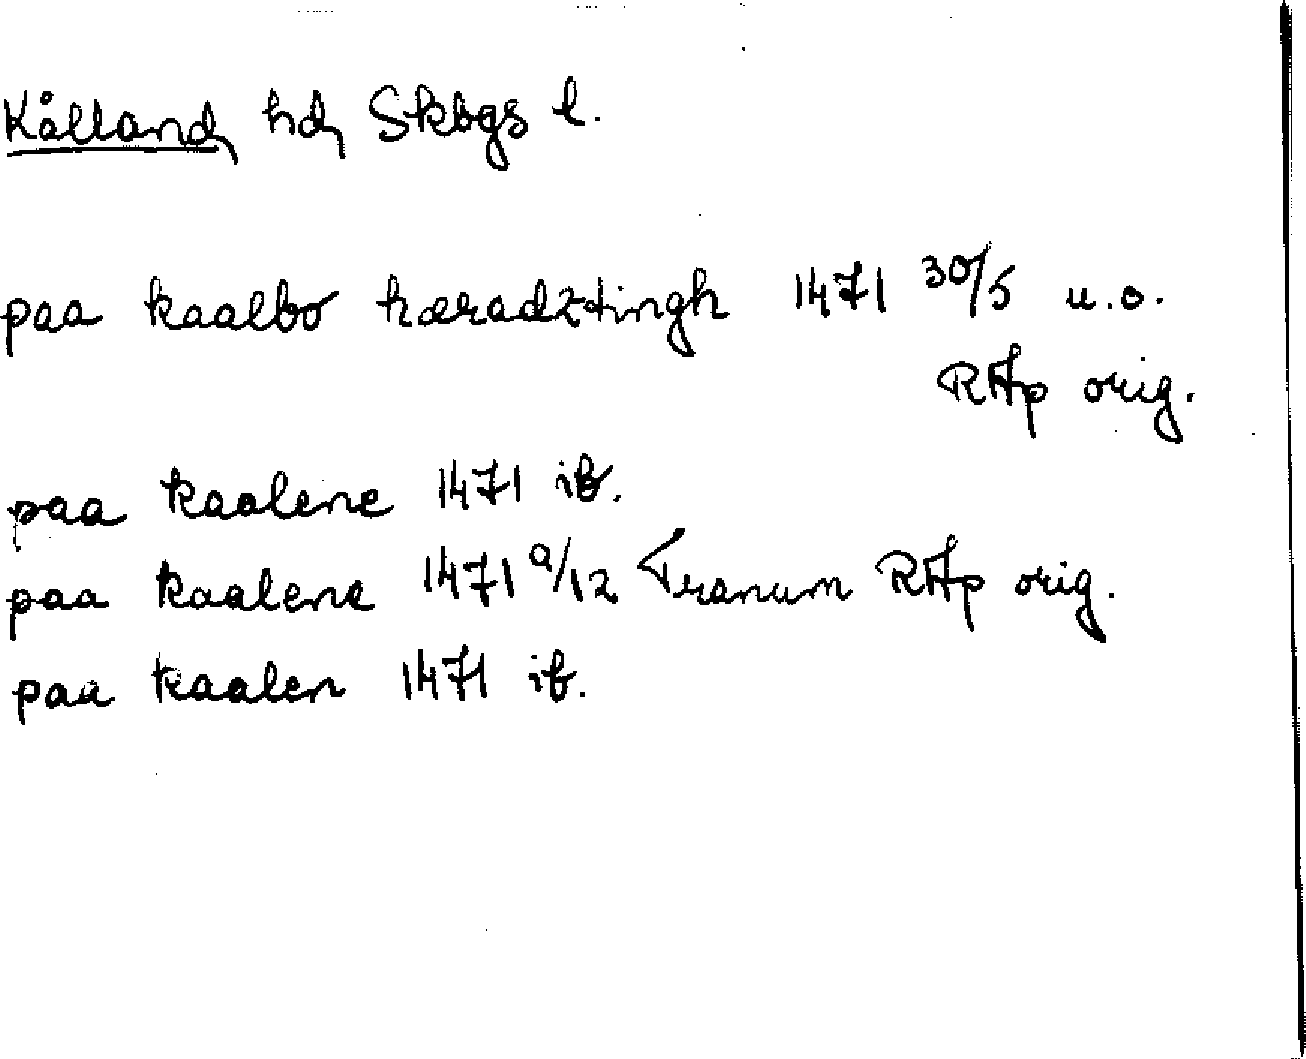 Kålland hd, Skbgs l.
paa kaalbo hæradztingh 1471 30/5 u.o.
RAp orig.
paa kaalene 1471 ib.
paa kaalene 1471 9/12 Tranum RAp orig.
paa kaalen 1471 ib.